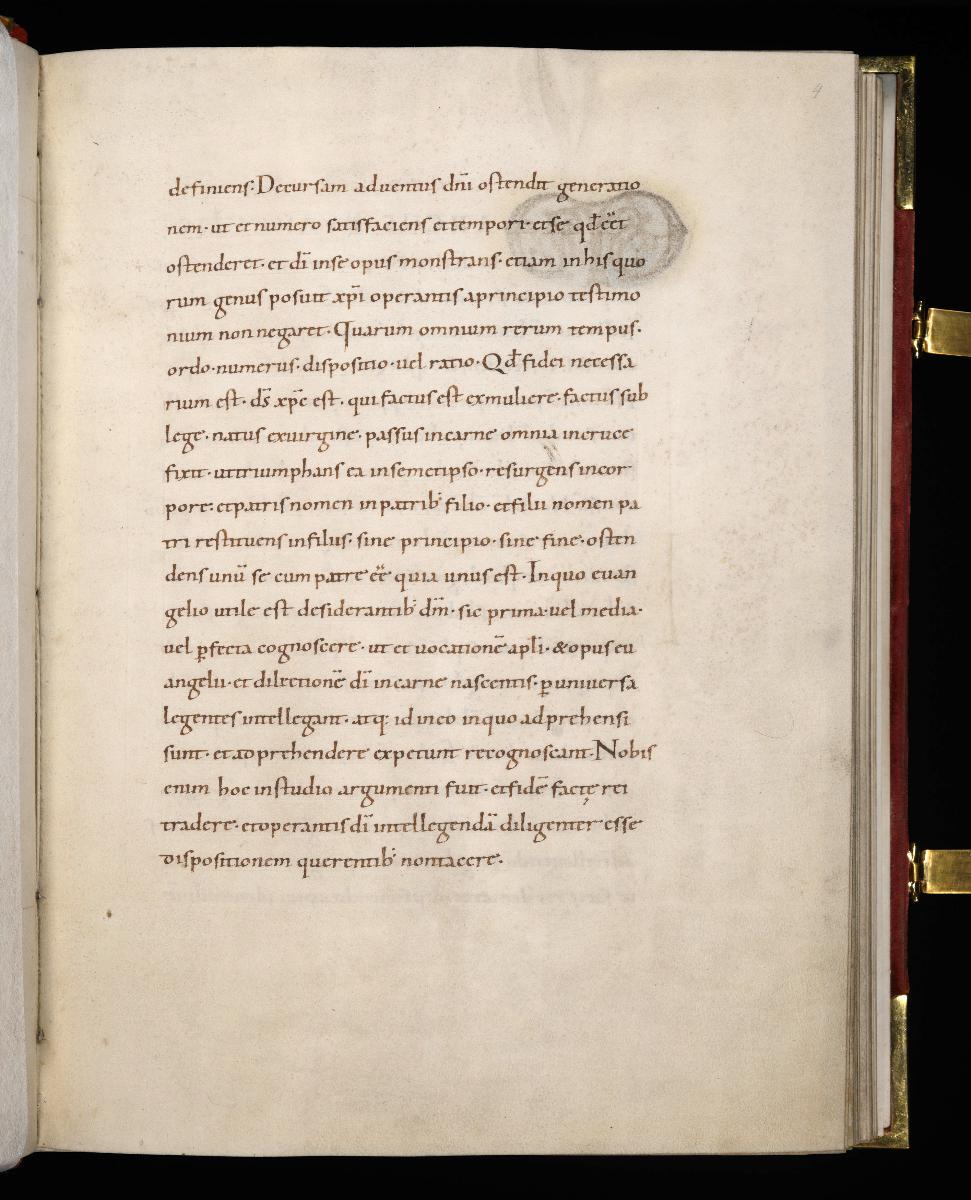 4
definiens· Decursam aduentus dn̄i ostendit generatio
nem· ut et numero satisfaciens et tempori· et se qđ eēt
ostenderet· et dī in se opus monstrans· etiam in his quo
rum genus posuit xp̄i operantis a principio testimo
nium non negaret· Quarum omnium rerum tempus·
ordo· numerus· dispositio· uel ratio· Qđ fidei necessa
rium est· d̄s xp̄c est· qui factus est ex muliere· factus sub
lege· natus ex uirgine· passus in carne omnia in cruce
fixit· ut triumphans ea in semetipso· resurgens in cor
pore· et patris nomen in patrib; filio· et filii nomen pa
tri restituens in filiis· sine principio· sine fine· osten
dens unū se cum patre eē quia unus est· In quo euan
gelio utile est desiderantib; dm̄· sic prima· uel media·
uel ꝑfecta cognoscere· ut et uocationē apl̄i· & opus eu
angelii· et dilectionē dī in carne nascentis· ꝑ uniuersa
legentes intellegant· atq; id in eo in quo adprehensi
sunt· et adprehendere expetunt recognoscant· Nobis
enim hoc in studio argumenti fuit· et fidē factę rei
tradere· et operantis dī intellegendā diligenter esse
dispositionem querentib; non tacere·